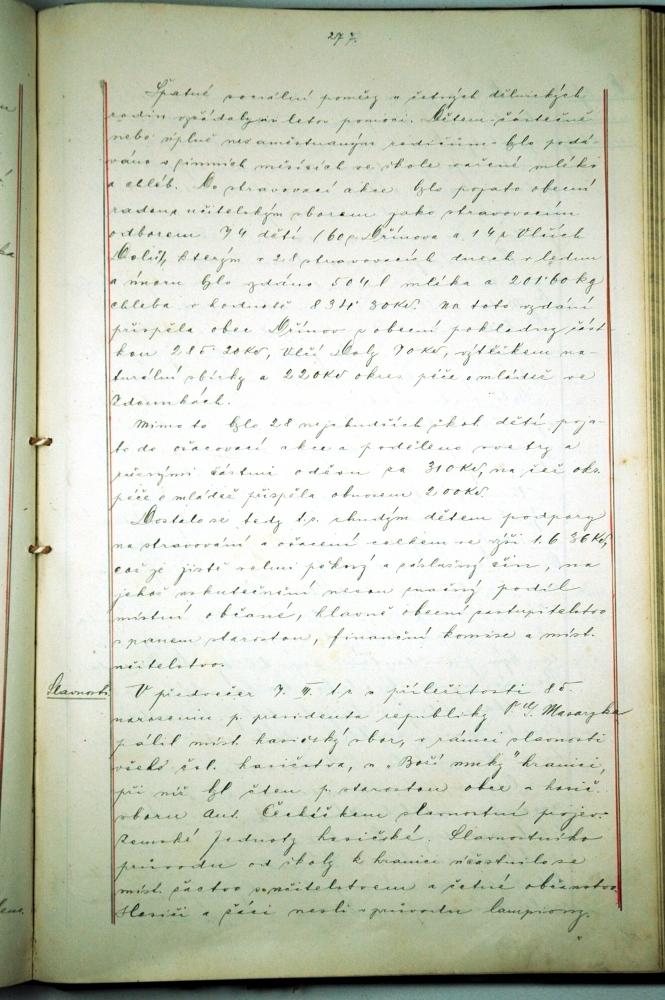 277.
Špatné sociální poměry u četných dělnických
rodin vyžádaly si letos pomoci. Dětem částečně
nebo úplně nezaměstnaných rodičům bylo podá-
váno v zimních měsících ve škole vařené mléko
a chléb. Do stravovací akce bylo pojato obecní
radou a učitelským sborem jako stravovacím
odborem 74 dětí (60 z Břínova a 14 z Vlčích
Dolů), kterým v 28 stravovacích dnech v lednu
a únoru bylo vydáno 504 l mléka a 201·60 kg
chleba v hodnotě 831·30 Kč. Na toto vydání
přispěla obec Břínov z obecní pokladny část
kou 285·20 Kč, Vlčí Doly 70 Kč, výtěžkem na-
turální sbírky a 220 Kč okres. péče o mládež ve
Zdounkách.
Mimo to bylo 28 nejchudších škol. dětí poja-
to do ošacovací akce a poděleno svetry a
různými částmi oděvu za 310 Kč, na než okr.
péče o mládež přispěla obnosem 200 Kč.
Dostalo se tedy t. r. chudým dětem podpory
na stravování a ošacení celkem ve výši 1.636 Kč,
což je jistě velmi pěkný a záslužný čin, na
jehož uskutečnění nesou značný podíl
místní občané, hlavně obecní zastupitelstvo
s panem starostou, finanční komise a míst.
učitelstvo.
Slavnosti. V předvečer 7. III. t. r. z příležitosti 85.
narozenin p. presidenta republiky T. G. Masaryka
pálil míst. hasičský sbor, v rámci slavnosti
všeho čsl. hasičstva, u „Boží muky" hranici,
při níž byl čten p. starostou obce a hasič.
sboru Ant. slavnostní projev
Zemské Jednoty hasičské. Slavnostního
průvodu od školy k hranici účastnilo se
míst. žactvo s učitelstvem a četné občanstvo.
Hasiči a žáci nesli v průvodu lampiony.